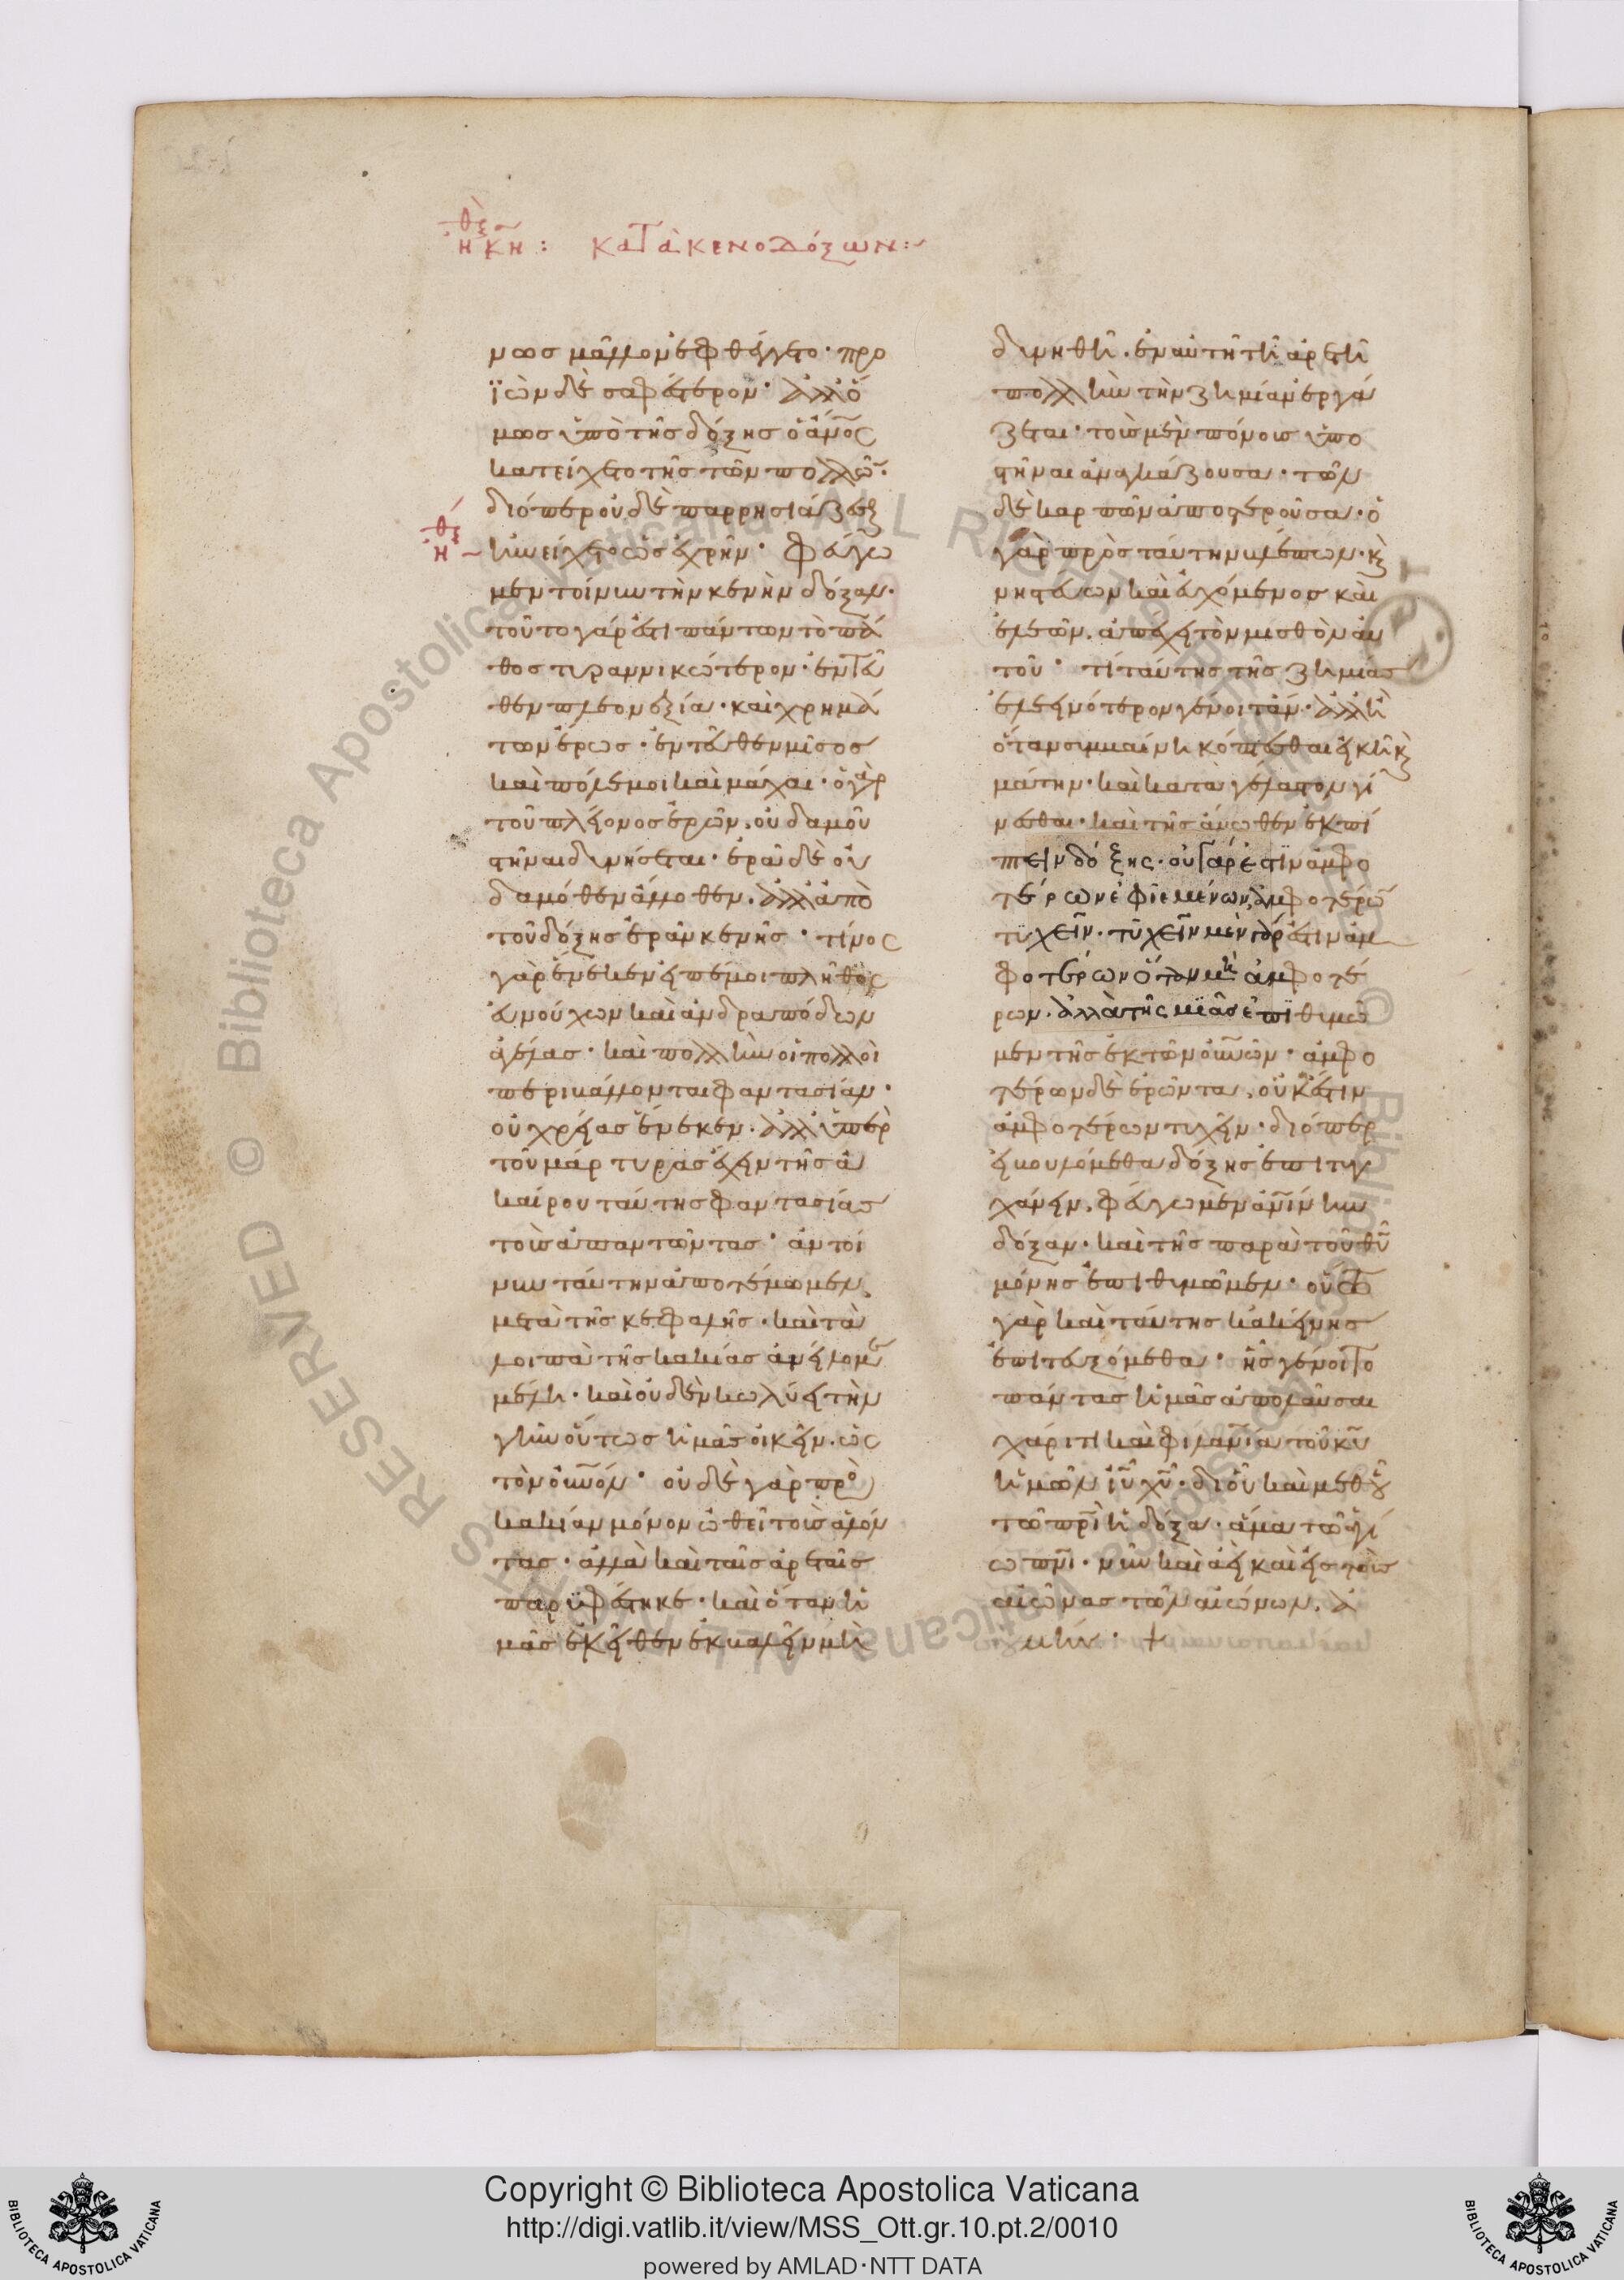 ἠθικη: ΚΑΤΑ ΚΕΝΟΔΟΞΩΝ:~
μωσ μᾶλλον ἐφθέγγετο· προ
ϊὼν δὲ σαφέστερον· ἀλλ' ὅ
μωσ ὑπὸ τῆσ δόξησ ὁ ἄνοσ
κατείχετο τῆσ τῶν πολλῶ·
διόπερ οὐδὲ παρρησιάζεσθαι
ἠθι
κὴν εἴχετο ὡσ ἐχρῆν· φύγω
μεν τοίνυν τὴν κενὴν δόξαν·
τοῦτο γάρ ἐστι πάντων τὸ πά
θοσ τυραννικώτερον· ἐντεῦ
θεν πλεονεξία· καὶ χρημά
των ἔρωσ· ἐντεῦθεν μῖσοσ
καὶ πόλεμοι καὶ μάχαι· ὁ γὰρ
τοῦ πλείονοσ ἐρῶν, οὐδαμοῦ
στῆναι δυνήσεται· ἐρᾶ δὲ οὐ
δαμόθεν ἄλλοθεν, ἀλλ' ἀπὸ
τοῦ δόξησ ἐρᾶν κενῆσ· τίνοσ
γὰρ ἕνεκεν εἰπέ μοι πλῆθοσ
εὐνούχων καὶ ἀνδραπόδων
ἀγέλασ· καὶ πολλὴν οἱ πολλοὶ
περιβάλλονται φαντασίαν·
οὐ χρείασ ἕνεκεν, ἀλλ' ὑπὲρ
τοῦ μάρτυρασ ἔχειν τῆσ ἀ
καίρου ταύτησ φαντασίασ
τοὺσ ἀπαντῶντασ· ἂν τοί
νυν ταύτην ἀποτέμωμεν,
μετὰ τῆσ κεφαλῆσ· καὶ τὰ
λοιπὰ τῆσ κακίασ ἀνέλομεν
μέλη· καὶ οὐδὲν κωλύει τὴν
γῆν οὕτωσ ἡμᾶσ οἰκεῖν, ὡσ
τὸν οὐνόν· οὐδὲ γὰρ πρὸσ
κακίαν μόνον ὠθεῖ τοὺσ ἁλόν
τασ· ἀλλὰ καὶ ταῖσ ἀρεταῖσ
παρυφέστηκε· καὶ ὅταν ἡ
μᾶσ ἐκεῖθεν ἐκβαλεῖν μὴ
δυνηθῆ, ἐν αὐτῆ τῆ ἀρετῆ
πολλὴν τὴν ζημίαν ἐργά
ζεται· τοὺσ μὲν πόνουσ ὑπο
στῆναι ἀναγκάζουσα· τῶν
δὲ καρπῶν ἀποστεροῦσα· ὁ
γὰρ πρὸσ ταύτην βλέπων· κὰν
νηστεύων καὶ εὐχόμενοσ καὶ
ἐλεῶν, ἀπέχει τὸν μισθὸν αὐ
τοῦ· τί ταύτησ τῆσ ζημίασ
ἐλεεινότερον γένοιτ' ἄν· ἀλλ' ἢ
ὅταν συμβαίνη κόπτεσθαι εἰκῆ καὶ
μάτην· καὶ καταγέλαστον γί
νεσθαι· καὶ τῆσ ἄνωθεν ἐκπί
πτειν δόξης· οὐ γάρ ἐστιν ἀμφο
τέρων ἐφιεμένων, ἀμφοτέρων
τυχεῖν· τυχεῖν μὲν γάρ ἐστιν ἀμ
φοτέρων ὅταν μὴ ἀμφοτέ
ρων, ἀλλὰ τῆς μιᾶσ ἐπιθυμῶ
μεν τῆσ ἐκ τῶν οὐνῶν· ἀμφο
τέρων δὲ ἐρῶντα, οὐκ ἔστιν
ἀμφοτέρων τυχεῖν· διόπερ
εἰ βουλόμεθα δόξησ ἐπιτυγ
χάνειν, φύγωμεν ἀνίνην
δόξαν· καὶ τῆσ παρὰ τοῦ θῦ
μόνησ ἐπιθυμῶμεν· οὕτω
γὰρ καὶ ταύτησ κἀκείνησ
ἐπιτευξόμεθα· ἧσ γένοιτο
πάντασ ἡμᾶσ ἀπολαῦσαι
χάριτι καὶ φιλανία τοῦ κῦ
ἡμῶν ἰῦ χῦ· δι' οὗ καὶ μεθ' οὗ
τῶ πρὶ ἡ δόξα· ἅμα τῶ ἁγί
ω πνι· νῦν καὶ ἀεὶ καὶ εἰσ τοὺσ
αἰῶνασ τῶν αἰώνων, ἀ
μήν· +
Copyright © Biblioteca Apostolica Vaticana
http://digi.vatlib.it/view/MSS_Ott.gr.10.pt.2/0010
powered by AMLAD·NTT DATA
BIBLIOTECA APOSTOLICA VATICANA
BIBLIOTECA APOSTOLICA VATICANA